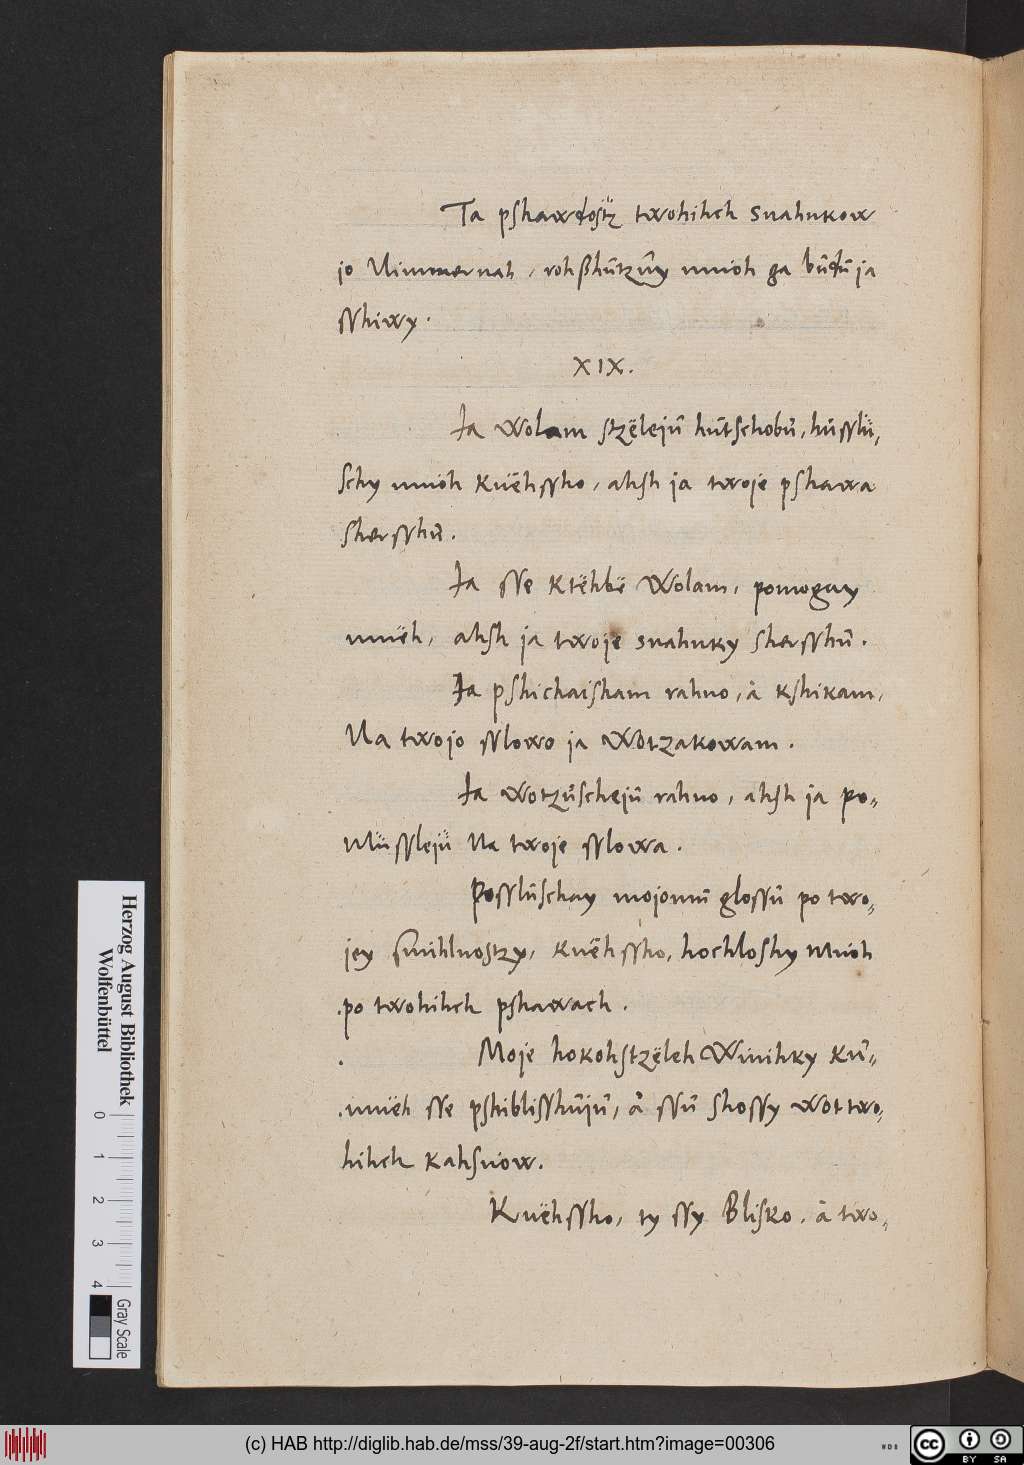 Ta pshawdostz twohihch snahnkow
jo Nimmernah, rohßhűtzűy mnioh ga bűdű ja
sshiwy.
XIX.
Ja wolam stzëlejű hűtschobű, hűsslű„
schy mnioh Knëhssho, ahsh ja twoje pshawa
shersshű.
Ja sse Ktëhbë Wolam, pomogay
mnëh, ahsh ja twoje snahnky shersshű.
Ja pshichaisham rahno, å kshikam,
Na twojo sslowo ja Wotzakowam.
Ja wotzűschejű rahno, ahsh ja po„
Műsslejű Na twoje sslowa.
Possluschay mojomű glossű po two„
jey smihlnostzy, Knëhssho, hochloshy Mnioh
po twohihch pshawach.
Moje hokohstzëleh Winihky Kű„
mnëh sse pshiblisshűjű, å ssű shossy wot two„
hihch kahsniow.
Knëhssho, ty ssy Blisko, å two„
Herzog August Bibliothek
Wolfenbüttel
0 1 2 3 4
Gray Scale
(c) HAB http://diglib.hab.de/mss/39-aug-2f/start.htm?image=00306
WDB
CC BY SA